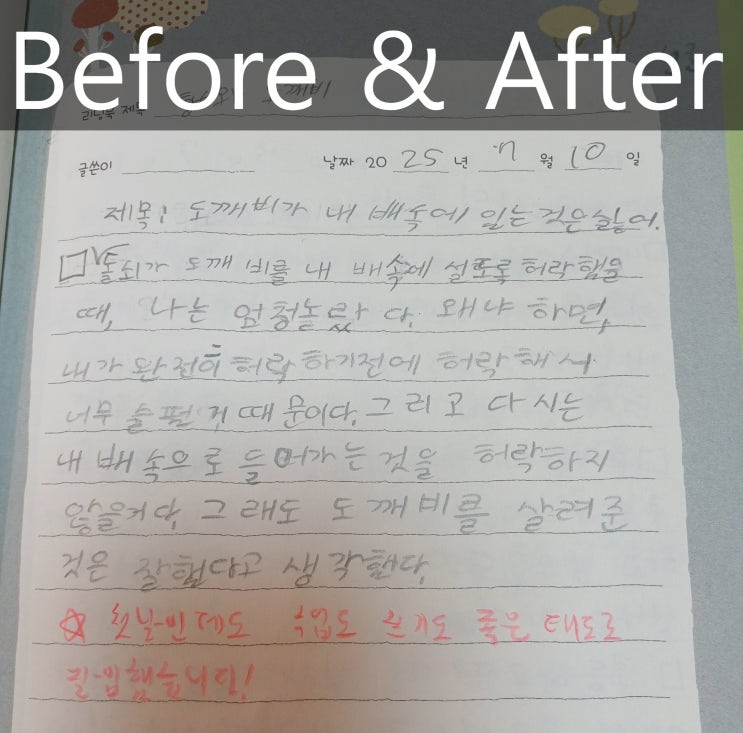 Before & After
리딩북 제목 깨비
글쓴이 날짜 20 25 년 7 월 10 일
제목: 도깨비가 내 배속에 있는 것은 싫어.
돌쇠가 도깨비를 내 배속에 허락했을
때, 나는 엄청놀랐다. 왜냐하면,
내가 완전히 허락하기전에 허락해서
너무 슬펐기 때문이다. 그리고 다시는
내 배속으로 들어가는 것을 허락하지
않을거다. 그래도 도깨비를 살려준
것은 잘했다고 생각한다.
☆ 첫날인데도 수업도 쓰기도 좋은 태도로